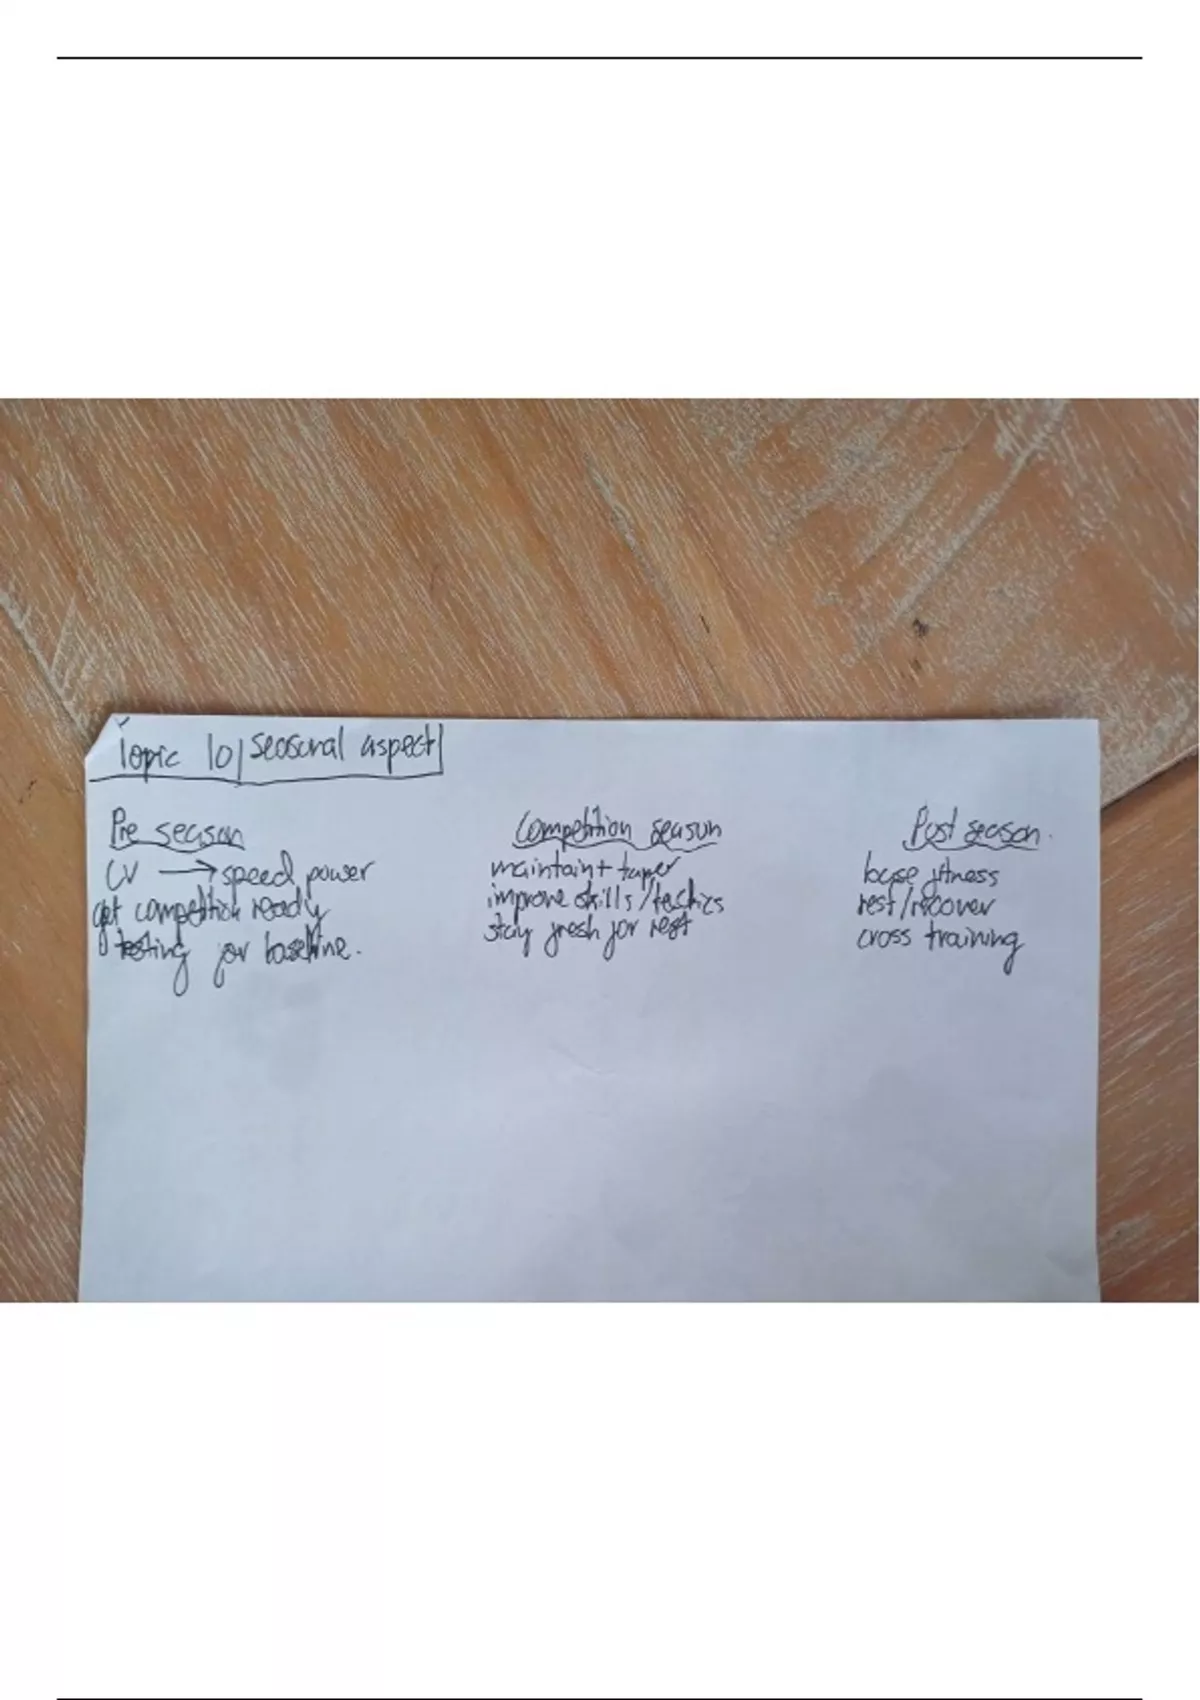 Topic 10 | seasonal aspect
Pre season
CV → speed power
get competition ready
testing for baseline.
Competition season
maintain + taper
improve skills / tactics
stay fresh for rest
Post season.
base fitness
rest/recover
cross training